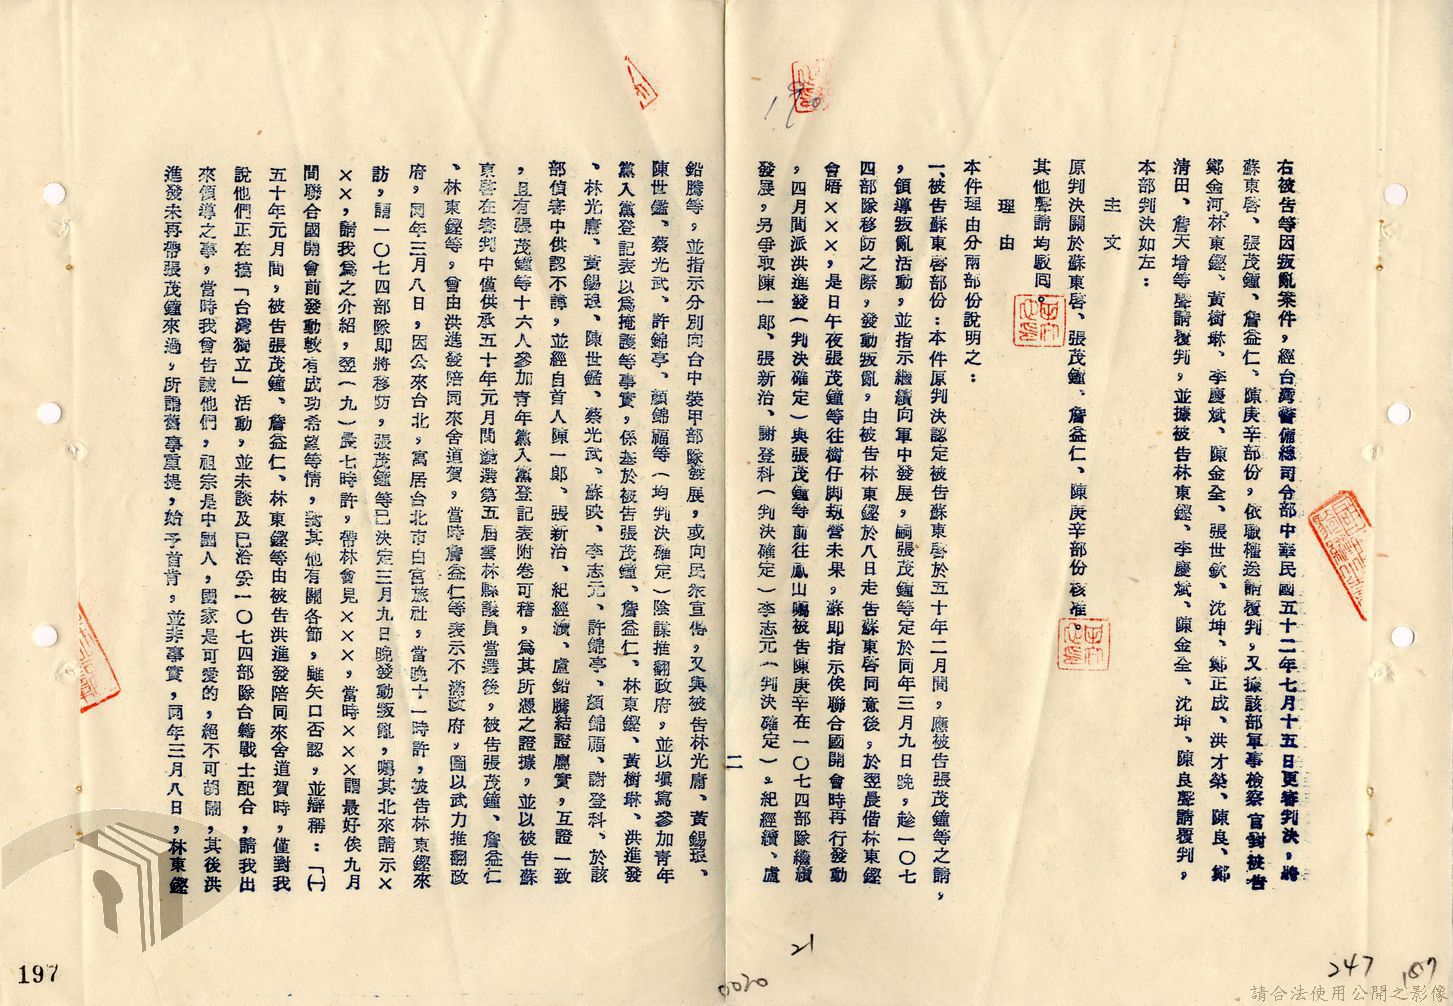 右被告等因叛亂案件，經台灣警備總司令部中華民國五十二年七月十五日更審判決，將
蘇東啓、張茂鐘、詹益仁、陳庚辛部份，依職權送請覆判，又據該部軍事檢察官對被告
鄭金河、林東鏗、黃樹琳、李慶斌、陳金全、張世欽、沈坤、鄭正成、洪才榮、陳良、鄭
清田、詹天增等聲請覆判，並據被告林東鏗、李慶斌、陳金全、沈坤、陳良聲請覆判，
本部判決如左：
主文
原判決關於蘇東啓、張茂鐘、詹益仁、陳庚辛部份核准。
其他聲請均駁回。
理由
本件理由分兩部份說明之：
一、被告蘇東啓部份：本件原判決認定被告蘇東啓於五十年二月間，應被告張茂鐘等之請，
，領導叛亂活動，並指示繼續向軍中發展，嗣張茂鐘等定於同年三月九日晚，趁一〇七
四部隊移防之際，發動叛亂，由被告林東鏗於八日走告蘇東啓同意後，於翌晨偕林東鏗
會晤×××，是日午夜張茂鐘等往樹仔脚刼營未果，蘇即指示俟聯合國開會時再行發動
，四月間派洪進發（判決確定）與張茂鐘等前往鳳山囑被告陳庚辛在一〇七四部隊繼續
發展，另爭取陳一郎、張新治、謝登科（判決確定）李志元（判決確定）。紀經續、盧
二
鉛騰等，並指示分別向台中裝甲部隊發展，或向民衆宣傳，又與被告林光庸、黃錫琅、
陳世鑑、蔡光武、許錦亭、顏錦福等（均判決確定）陰謀推翻政府，並以塡寫參加青年
黨入黨登記表以爲掩護等事實，係基於被告張茂鐘、詹益仁、林東鏗、黃樹琳、洪進發
、林光庸、黃錫琅、陳世鑑、蔡光武、蘇映、李志元、許錦亭、顏錦福、謝登科、於該
部偵審中供認不諱，並經自首人陳一郎、張新治、紀經續、盧鉛騰結證屬實，互證一致
，且有張茂鐘等十六人參加青年黨入黨登記表附卷可稽，爲其所憑之證據，並以被告蘇
東啓在審判中僅供承五十年元月間競選第五屆雲林縣議員當選後，被告張茂鐘、詹益仁
、林東鏗等，曾由洪進發陪同來舍道賀，當時詹益仁等表示不滿政府，圖以武力推翻政
府，同年三月八日，因公來台北，寓居台北市白宮旅社，當晚十一時許，被告林東鏗來
訪，謂一〇七四部隊即將移防，張茂鐘等已決定三月九日晚發動叛亂，囑其北來請示×
××，請我爲之介紹，翌（九）晨七時許，帶林會見×××，當時×××謂最好俟九月
間聯合國開會前發動較有成功希望等情，對其他有關各節，雖矢口否認，並辯稱：「㈠
五十年元月間，被告張茂鐘、詹益仁、林東鏗等由被告洪進發陪同來舍道賀時，僅對我
說他們正在搞「台灣獨立」活動，並未談及已洽妥一〇七四部隊台籍戰士配合，請我出
來領導之事，當時我曾告誡他們，祖宗是中國人，國家是可愛的，絕不可胡鬧，其後洪
進發未再帶張茂鐘來過，所謂舊事重提，始予首肯，並非事實，同年三月八日，林東鏗
197
21
0020
247
187
請合法使用公開之影像